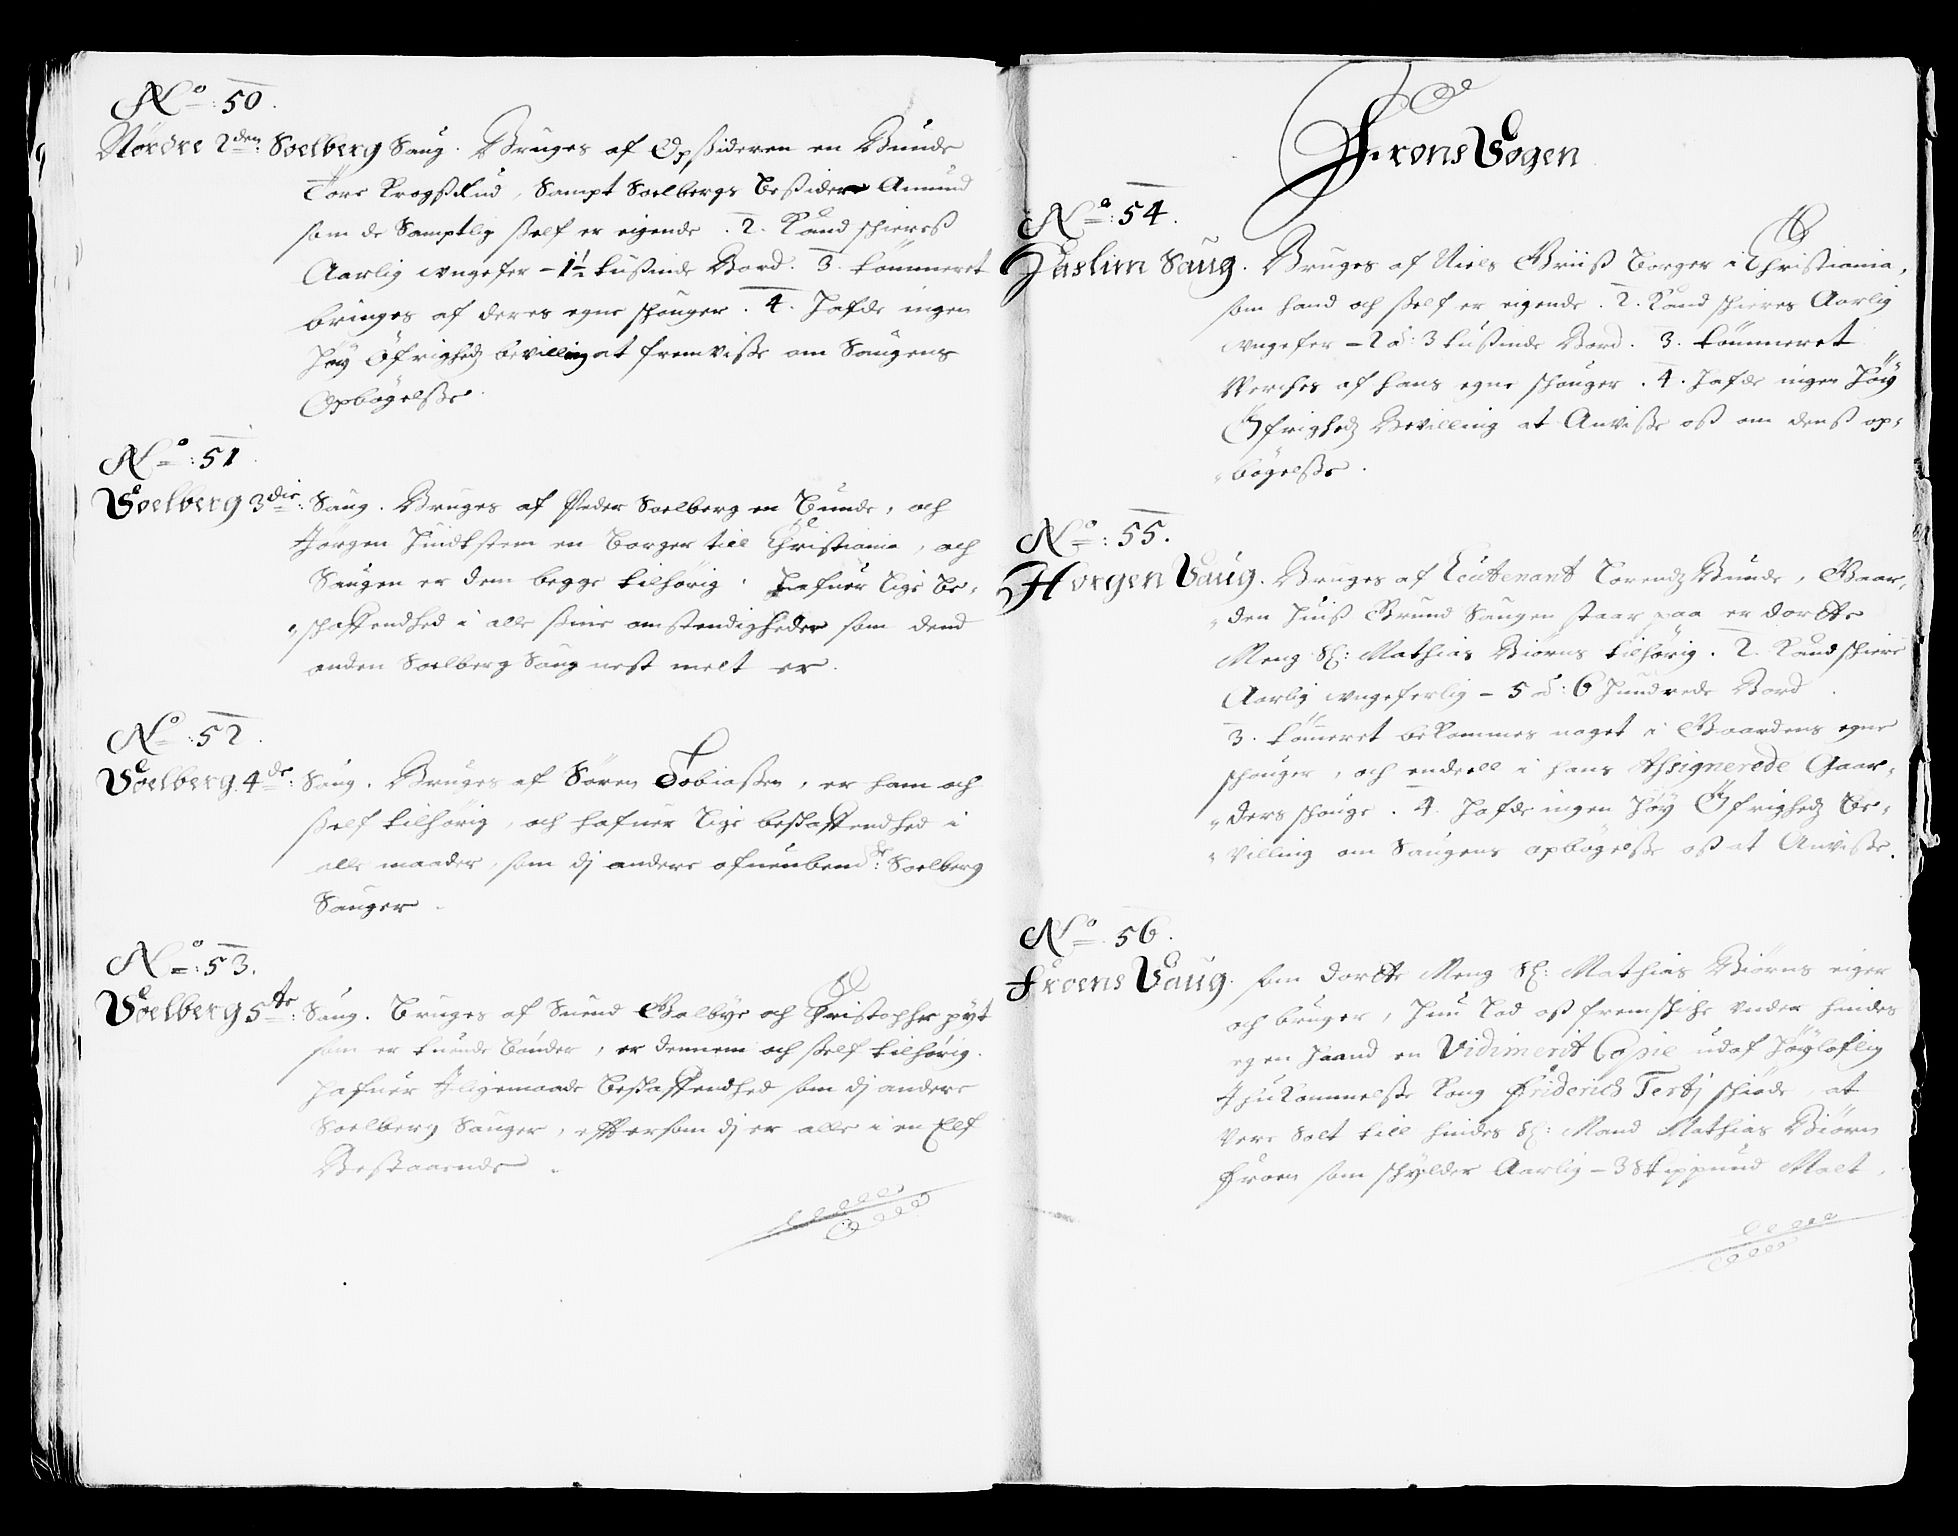 No: 50.
Nordre 2den: Soelberg Saug. Bruges af Opsideren en Bunde
Tore Krogsrud, Sampt Soelbergs Besidere Amund
som de Samptlig self er eigende. 2. Kand schieres
Aarlig ungefer - 1½ tusinde Bord. 3. Tömmeret
bringes af deres egne schouger. 4. Hafde ingen
Höy Öfrigheds bevilling at fremvisse om Saugens
Opbögelsse.
No: 51
Soelberg 3die: Saug. Bruges af Peder Soelberg en Bunde, och
Jörgen Hindtstem en Borger till Christiania, och
Saugen er dem begge tilhörig. Hafuer lige be-
schaffendhed i alle sine omstendigheder som dend
anden Soelberg Saug nest melt er.
No: 52.
Soelberg 4de: Saug. Bruges af Sören Tobiassen, er ham och
self tilhörig, och hafuer lige beschaffendhed i
alle maader, som dj andre ofuenbemte: Soelberg
Sauger.
No: 53.
Soelberg 5te: Saug. Bruges af Suend Galbye och Christopher pÿt
som er tuende bönder, er dennem och self tilhörig.
Hafuer Iligemaade beschaffendhed som dj andre
Soelberg Sauger, effttersom dj er alle i en Elf
Bestaaende.
Frons Sogen
No: 54.
Huslim Saug. Bruges af Niels Griis borger i Christiania,
som hand och self er eigende. 2. Kand schieres Aarlig
ungefer - 2 à: 3 tusinde Bord. 3. Tömmeret
Verches af hans egne schouger. 4. Hafde ingen Höy
Öfrigheds Bevilling at Anvisse oss om dens op-
bögelsse.
No: 55.
Horgen Saug. Bruges af Leutenant Lorends Bunde, Gaar-
den huis Grund Saugen staar paa er dorthe
Meng Sl: Mathias Biörns tilhörig. 2. Kand schiere
Aarlig ungeferlig - 5 à: 6 hundrede Bord.
3. Tömeret bekommes noget i Gaardens egne
schouger, och endeell i hans Assignerede Gaar-
ders schouge. 4. Hafde ingen Höy Öfrigheds Be-
villing om Saugens opbögelsse oss at Anvisse.
No: 56.
Froens Saug. som dorthe Meng Sl: Mathias Biörns eiger
och bruger, hun lod oss fremskiche under hendes
egen haand en Vidimerit Copie udaf Höyloflig
Ihukommelsse Kong Friderich Tertj schiöde, at
vere solt till hendes Sl: Mand Mathias Biörn
Froen som schylder Aarlig - 3 Skippund Malt.